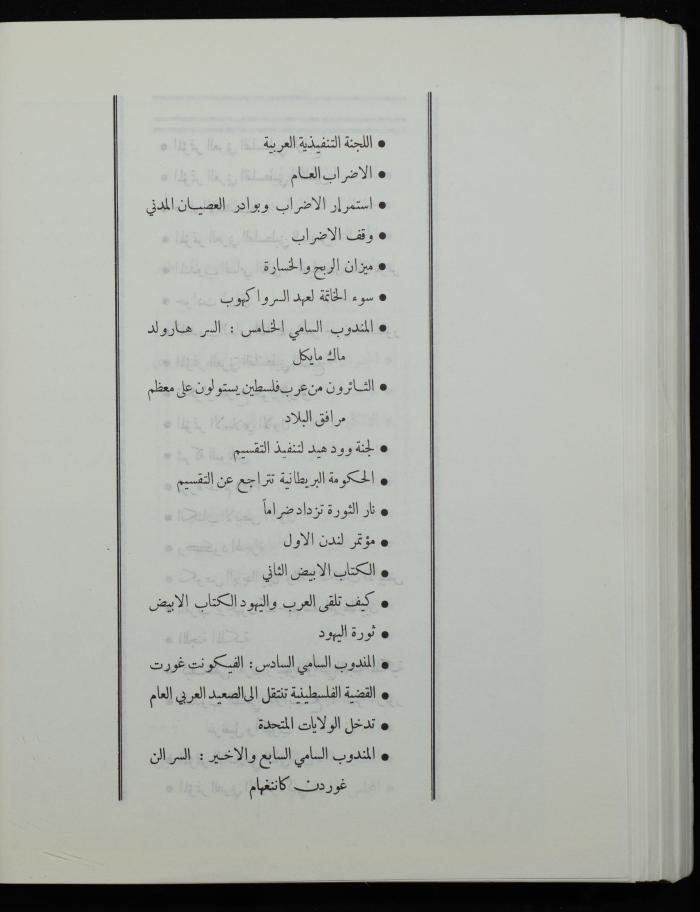 • اللجنة التنفيذية العربية
• الاضراب العام
• استمرار الاضراب وبوادر العصيان المدني
• وقف الاضراب
• ميزان الربح والخسارة
• سوء الخاتمة لعهد السر واكهوب
• المندوب السامي الخامس : السر هارولد
ماك مايكل
• الثائرون من عرب فلسطين يستولون على معظم
مرافق البلاد
• لجنة وودهيد لتنفيذ التقسيم
• الحكومة البريطانية تتراجع عن التقسيم
• نار الثورة تزداد ضراماً
• مؤتمر لندن الاول
• الكتاب الابيض الثاني
• كيف تلقى العرب واليهود الكتاب الابيض
• ثورة اليهود
• المندوب السامي السادس : الفيكونت غورت
• القضية الفلسطينية تنتقل الى الصعيد العربي العام
• تدخل الولايات المتحدة
• المندوب السامي السابع والاخير : السر الن
غوردن كاننغهام